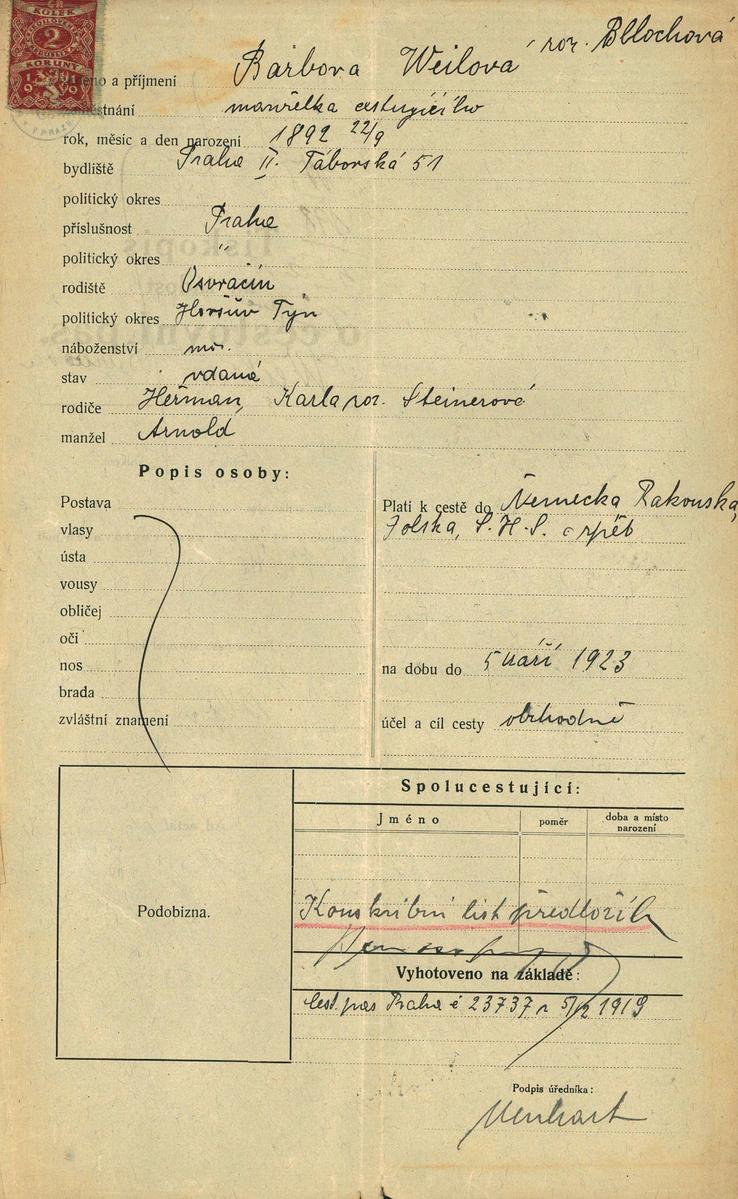 KOLEK
2
KORUNY
1919
Barbora Weilová roz. Bllochová
méno a příjmení
městnání manželka cestujícího
rok, měsíc a den narození 1892 22/9
bydliště Praha II. Táborská 51
politický okres
příslušnost Praha
politický okres "
rodiště Osvračín
politický okres Horšův Týn
náboženství moj.
stav vdaná
rodiče Heřman, Karla roz. Steinerová
manžel Arnold
Popis osoby:
Postava
vlasy
ústa
vousy
obličej
oči
nos
brada
zvláštní znamení
Platí k cestě do Německa Rakouska,
Polska, S.H.S. a zpět
na dobu do 5 září 1923
účel a cíl cesty obchodně
Podobizna.
Spolucestující:
Jméno poměr doba a místo narození
Konskribní list předložil
Vyhotoveno na základě:
Cest. pas Praha č 23737 z 5/2 1919
Podpis úředníka: